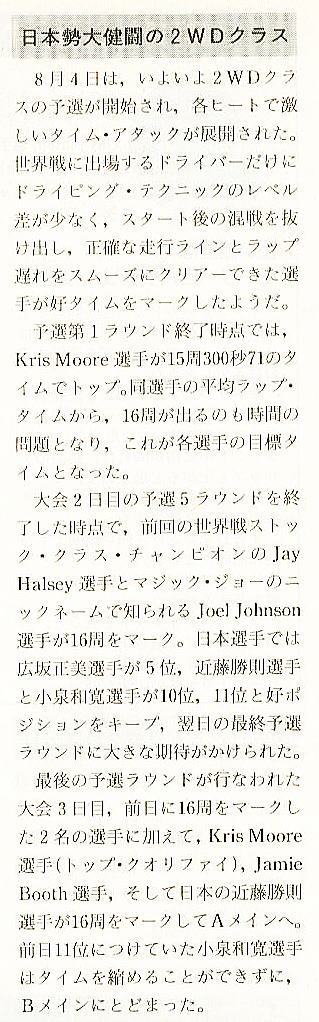 日本勢大健闘の2WDクラス
　8月4日は，いよいよ2WDクラ
スの予選が開始され，各ヒートで激
しいタイム・アタックが展開された。
世界戦に出場するドライバーだけに
ドライビング・テクニックのレベル
差が少なく，スタート後の混戦を抜
け出し，正確な走行ラインとラップ
遅れをスムーズにクリアーできた選
手が好タイムをマークしたようだ。
　予選第1ラウンド終了時点では，
Kris Moore 選手が15周300秒71のタ
イムでトップ。同選手の平均ラップ・
タイムから，16周が出るのも時間の
問題となり，これが各選手の目標タ
イムとなった。
　大会2日目の予選5ラウンドを終
了した時点で，前回の世界戦ストッ
ク・クラス・チャンピオンの Jay
Halsey 選手とマジック・ジョーのニ
ックネームで知られる Joel Johnson
選手が16周をマーク。日本選手では
広坂正美選手が5位，近藤勝則選手
と小泉和寛選手が10位，11位と好ポ
ジションをキープ，翌日の最終予選
ラウンドに大きな期待がかけられた。
　最後の予選ラウンドが行なわれた
大会3日目，前日に16周をマークし
た2名の選手に加えて，Kris Moore
選手(トップ・クオリファイ)，Jamie
Booth 選手，そして日本の近藤勝則
選手が16周をマークしてAメインへ。
前日11位につけていた小泉和寛選手
はタイムを縮めることができずに，
Bメインにとどまった。